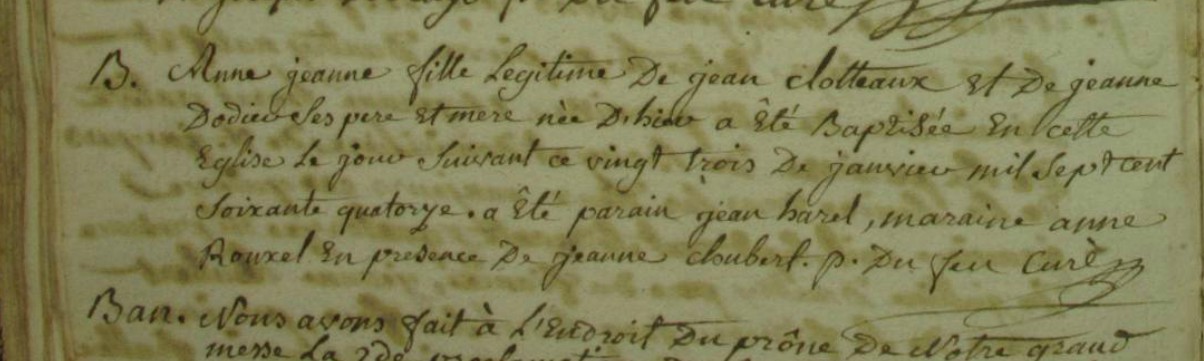 curé
B. Anne jeanne fille Legitime De jean clotteaux et De jeanne
Dodieu Ses pere et mere née D'hier a Êté Baptisée En cette
Eglise Le jour Suivant ce vingt trois De janvier mil Sept cent
Soixante quatorze. a Êté parain jean harel, maraine anne
Rouxel En presence De jeanne choubert. p. Du feu Curé
Ban. Nous avons fait à L'Endroit Du prône De Notre grand
messe La 2de